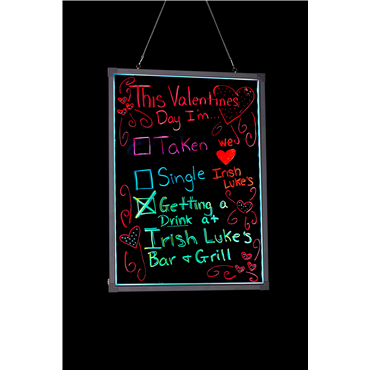 This Valentines
Day I'm...
Taken
We
Single
Irish
Luke's
Getting a
Drink at
Irish Luke's
Bar & Grill